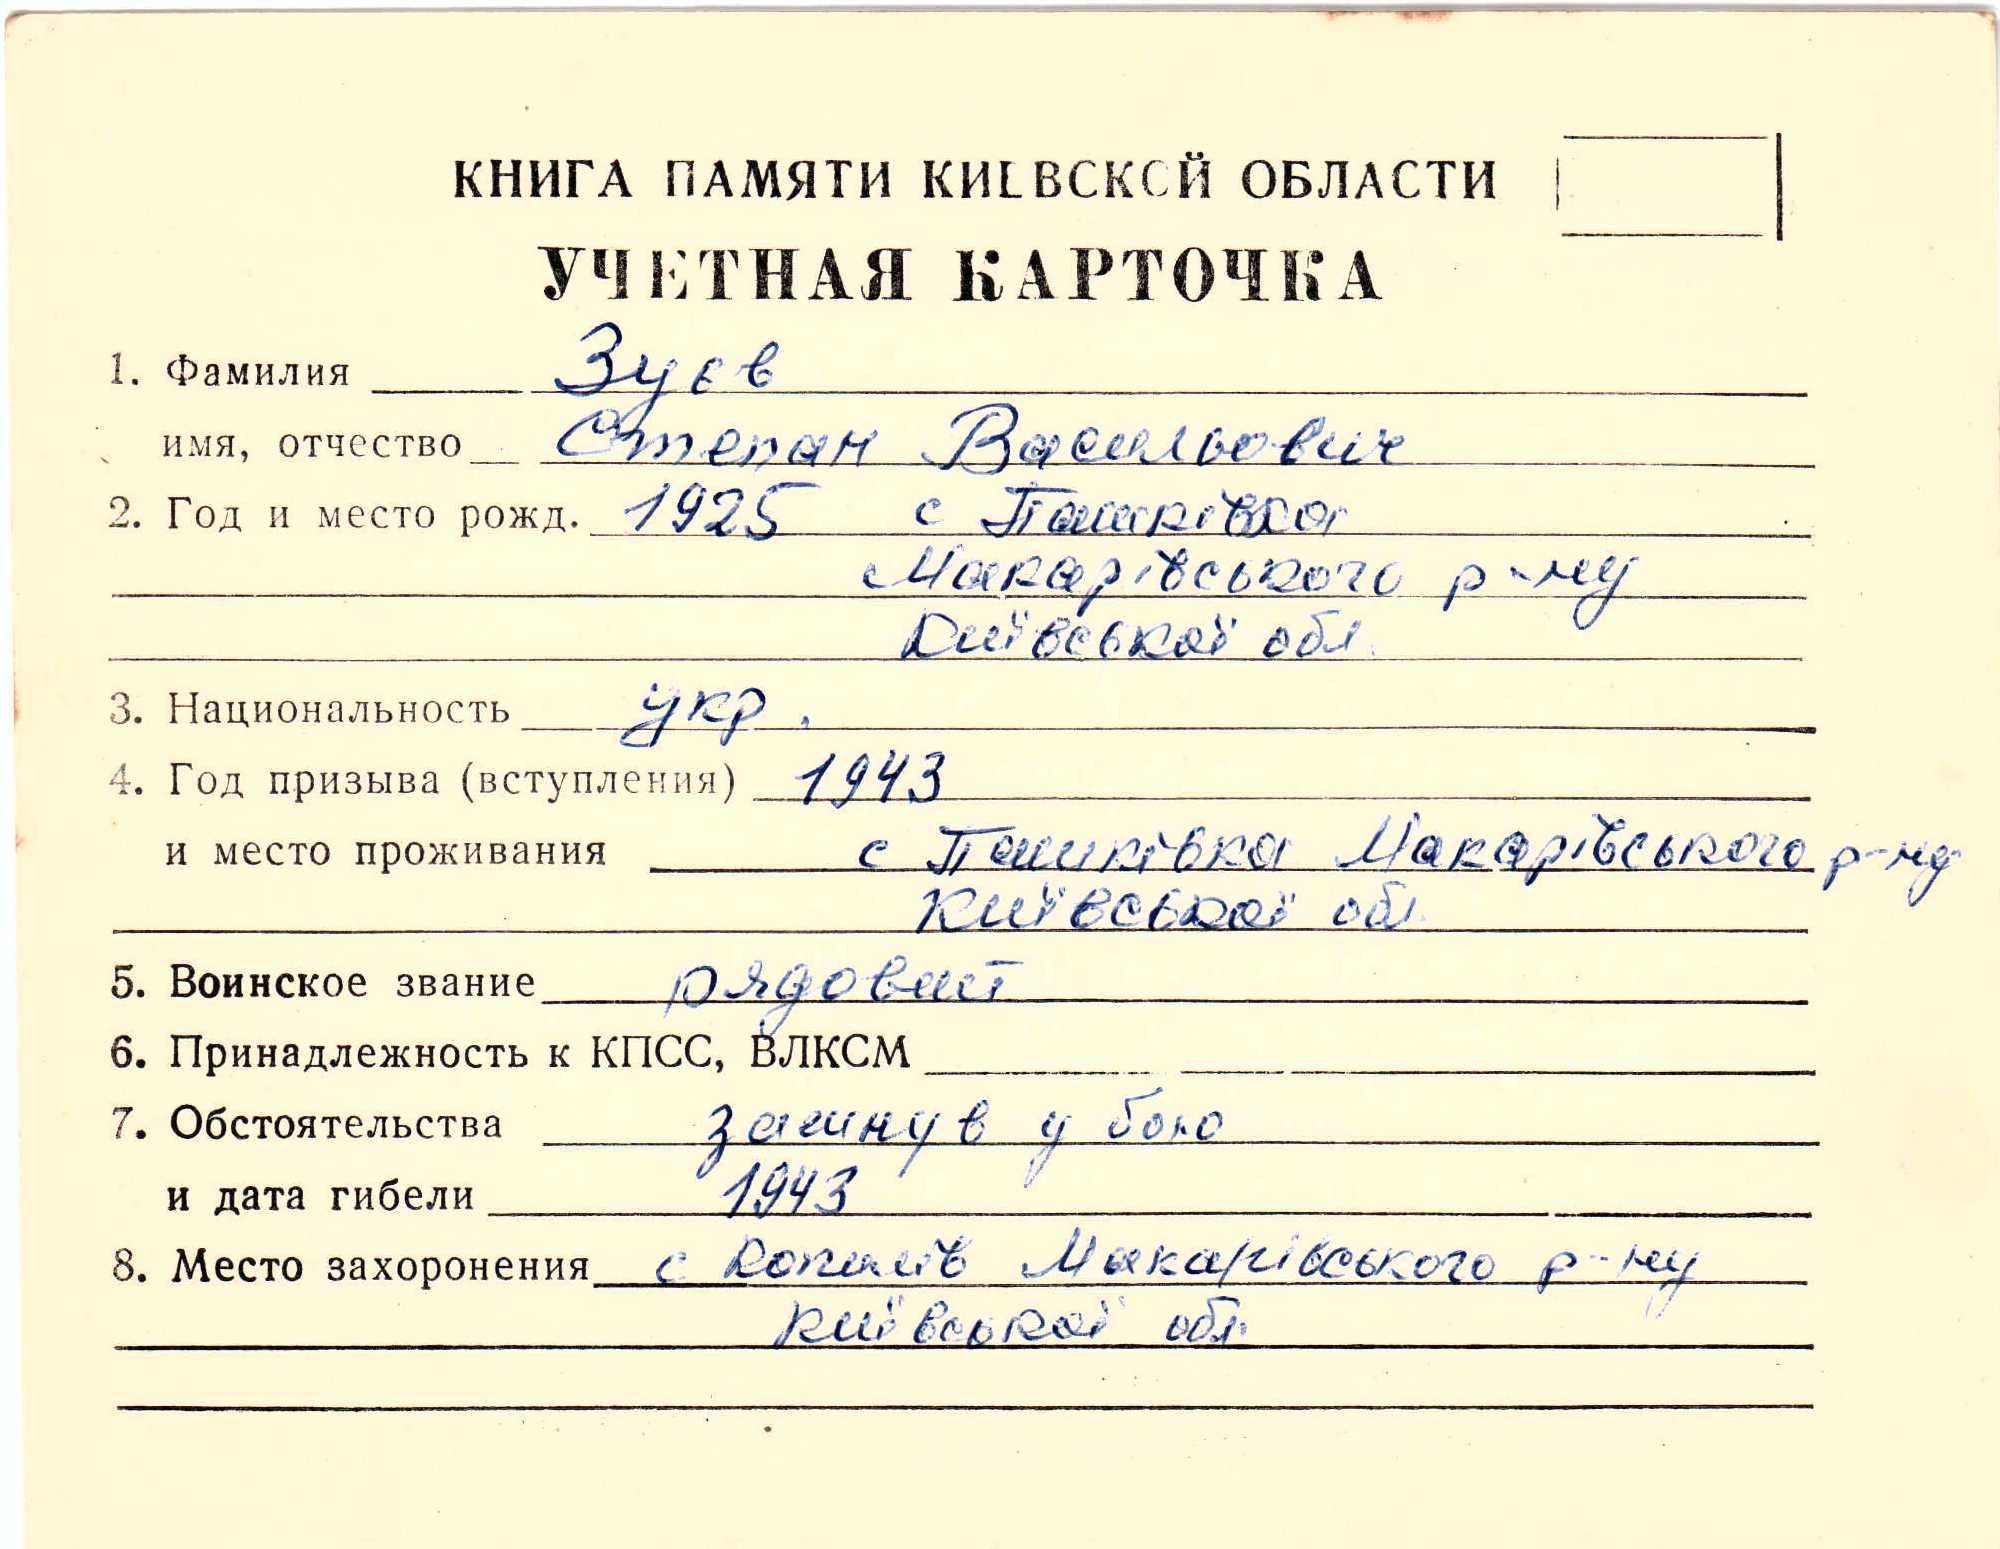 КНИГА ПАМЯТИ КИЕВСКОЙ ОБЛАСТИ
УЧЕТНАЯ КАРТОЧКА
1. Фамилия Зуєв
имя, отчество Степан Васильович
2. Год и место рожд. 1925 с Пашківка
Макарівського р-ну
Київської обл.
3. Национальность укр.
4. Год призыва (вступления) 1943
и место проживания с Пашківка Макарівського р-ну
Київської обл.
5. Воинское звание рядовий
6. Принадлежность к КПСС, ВЛКСМ
7. Обстоятельства загинув у бою
и дата гибели 1943
8. Место захоронения с Копилів Макарівського р-ну
Київської обл.